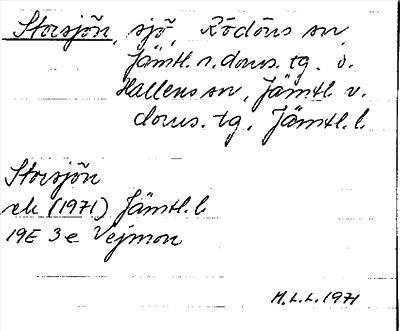 Storsjön, sjö, Rödöns sn,
Jämtl. n. doms. tg. o.
Hallens sn, Jämtl. v.
doms. tg, Jämtl. l.
Storsjön
ek (1971) Jämtl. l.
19E 3e Vejmon
M.L.L. 1971